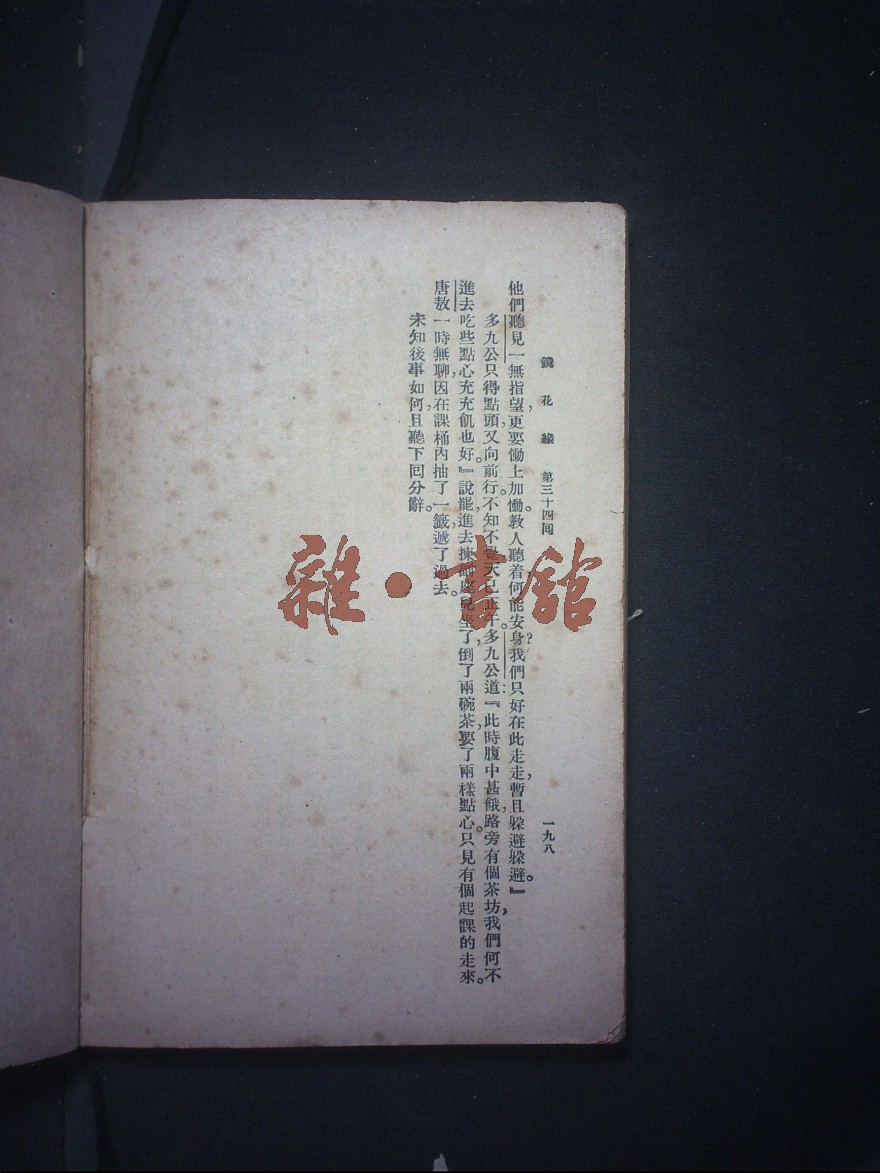 鏡花緣 第三十四回 一九八
他們聽見一無指望，更要慟上加慟。教人聽着何能安身？我們只好在此走走，暫且躲避躲避。』
多九公只得點頭，又向前行。不知不覺，天已正午。多九公道：『此時腹中甚餓，路旁有個茶坊，我們何不
進去吃些點心，充充飢也好。』說罷，進去揀副座兒坐了，倒了兩碗茶，要了兩樣點心。只見有個起課的走來。
唐敖一時無聊，因在課桶內抽了一籤，遞了過去。
未知後事如何，且聽下回分辭。
雜·書館